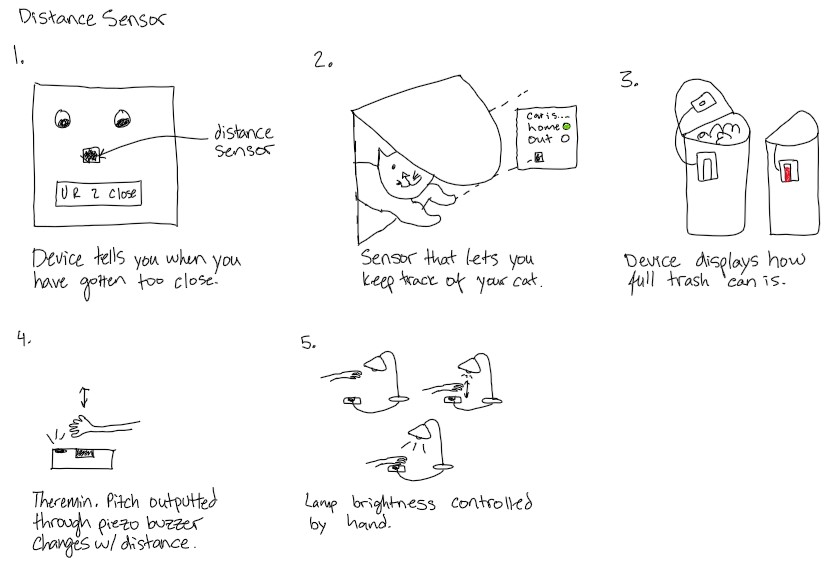 Distance Sensor
1.
distance
sensor
U R 2 Close
Device tells you when you
have gotten too close.
2.
Cat is...
home
out
Sensor that lets you
keep track of your cat.
3.
Device displays how
full trash can is.
4.
Theremin. Pitch outputted
through piezo buzzer
changes w/ distance.
5.
Lamp brightness controlled
by hand.